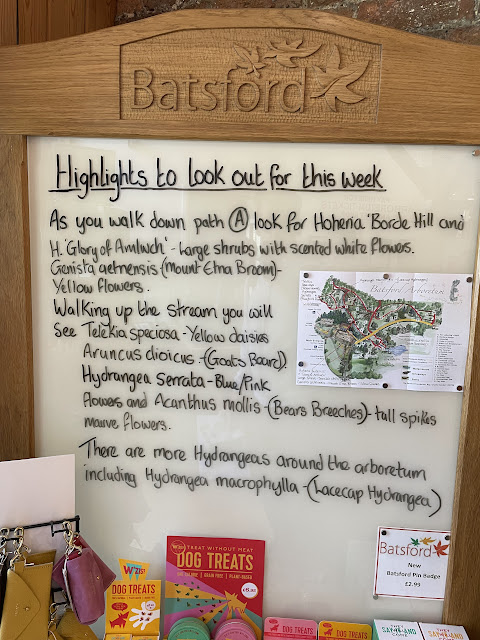 Batsford
Highlights to look out for this week
As you walk down path Ⓐ look for Hoheria 'Borde Hill and
H. 'Glory of Amlwch' - Large shrubs with scented white flowers.
Genista aetnensis (Mount Etna Broom) -
Yellow flowers.
Walking up the stream you will
See Telekia speciosa - Yellow daisies
Aruncus dioicus - (Goats Beard).
Hydrangea Serrata - Blue/Pink
flowers and Acanthus mollis - (Bears Breeches) - tall spikes
mauve flowers.
There are more Hydrangeas around the arboretum
including Hydrangea macrophylla - (Lacecap Hydrangea)
Batsford Arboretum
Batsford
New
Batsford Pin Badge
£2.99
TREAT WITHOUT MEAT
DOG TREATS
GRAIN FREE
PLANT-BASED
DOG TREATS
DOG TREATS
DOG TREATS